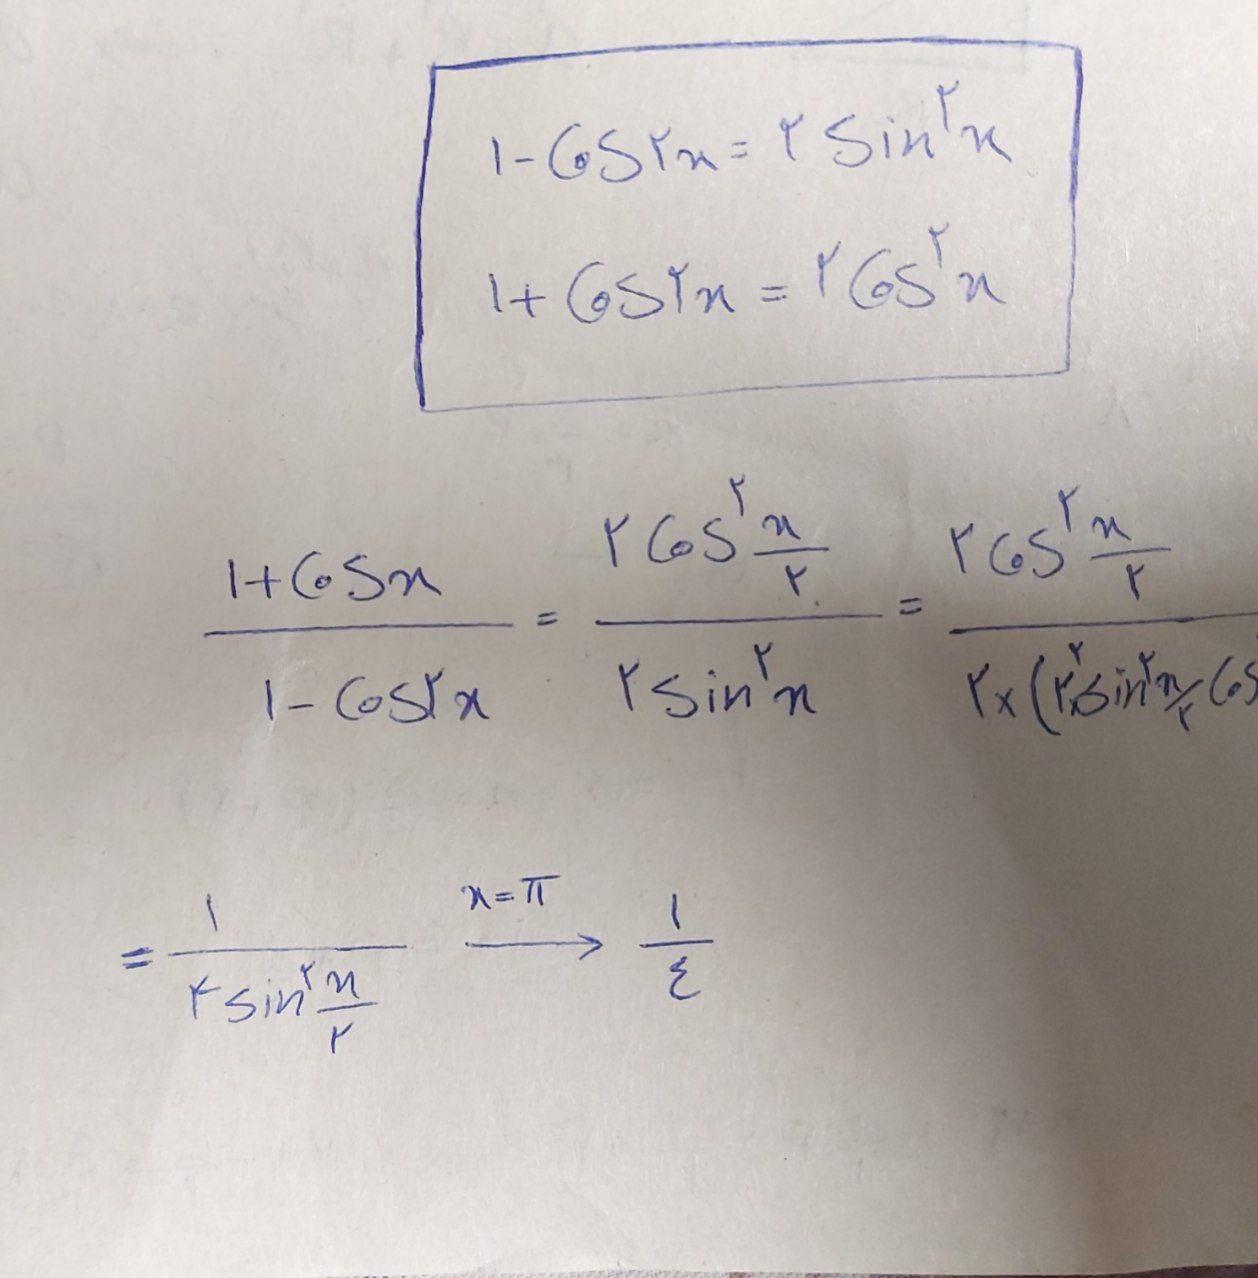 ۱ - Cos۲x = ۲ Sin^۲ x
۱ + Cos۲x = ۲ Cos^۲ x
(۱ + Cosx) / (۱ - Cos۲x) = (۲ Cos^۲ x/۲) / (۲ Sin^۲ x) = (۲ Cos^۲ x/۲) / (۲ × (۲^۲ Sin^۲ x/۲ Cos
= ۱ / (۴ sin^۲ x/۲) x = π → ۱/٤